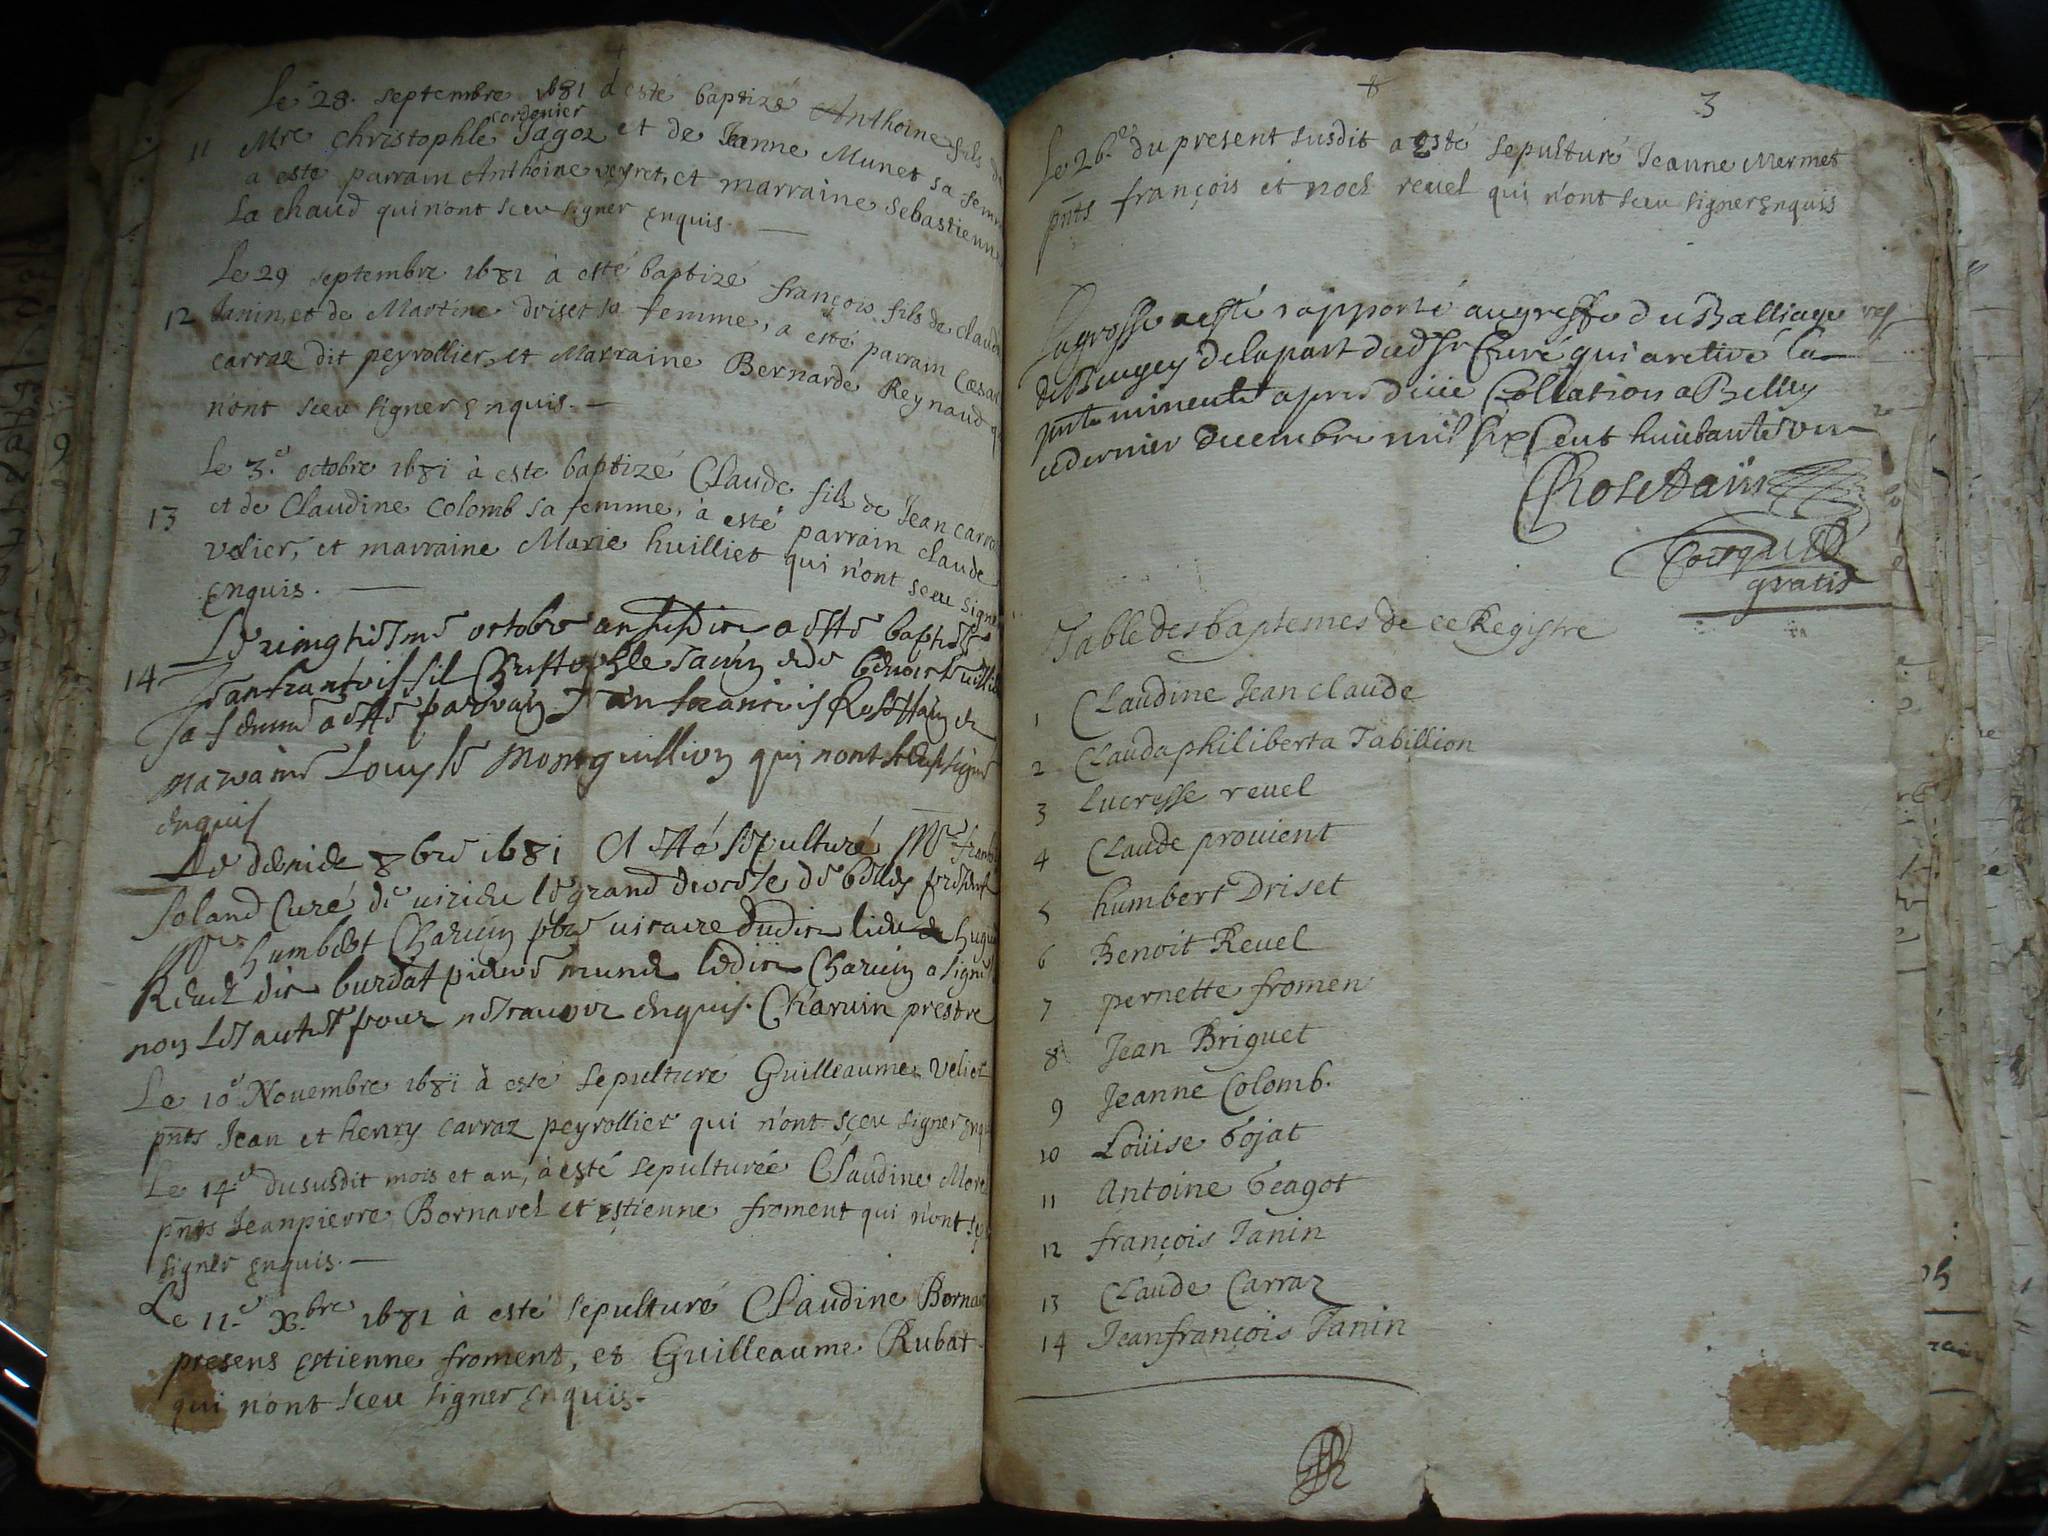 Le 28. septembre 1681 à esté baptizé Anthoine fils de
cordonier
11 Mre Christophle Jagoz et de Jeanne Munet sa femme
a este parrain Anthoine veyret, et marraine Sebastienne
La chaud qui n'ont sceu signer enquis.
Le 29 septembre 1681 à esté baptizé françois fils de claude
12 Janin, et de Martine driset sa femme, a esté parrain Cæsar
carraz dit peyrollier, et Marraine Bernarde Reynaud q
n'ont sceu signer enquis.
Le 3.e octobre 1681 à este baptizé Claude fils de Jean carra
13 et de Claudine Colomb sa femme, à esté parrain claude
velier, et marraine Marie huilliet qui n'ont sceu signe
enquis.
Le vingtiesme octobre an susdict a esté baptisé
14 Jean francois fil Christophle Janin et de benoiste
sa femme a esté parrain Jean francois Rosettain et
maraine Louyse Montguillion qui nont sceu signé
enquis
Le dernier 8bre 1681 A esté sepulturé Mre
Soland Curé de virieu le grand diocese de belley presents
Mre humbert Charvin pbre vicaire dudict lieu
Revel dict burdat pierre munet ledict Charvin a signé
non les autres pour ne scavoir enquis. Charvin prestre
Le 10e Novembre 1681 à esté sepulturé Guilleaume Veliet
pnts Jean et henry carraz peyrollier qui n'ont sçeu signer enqu
Le 14.e du susdit mois et an, à esté sepulturée Claudine More
pnts Jeanpierre Bornarel et estienne froment qui n'ont sçe
signer enquis.
Le 11.e Xbre 1681 à esté sepulturé Claudine Borna
presens estienne froment, et Guilleaume Rubat
qui n'ont sceu signer enquis.
8
3
Le 26.e du present susdit a esté sepulturé Jeanne Mermet
pnts françois et noel revel qui n'ont sceu signer enquis
La grosse a esté rapporté au greffe du Balliage
de Beugey de la part dud Sr Curé qui a retiré la
pnte minente apres düe Collation a Belley
ce dernier decembre mil six cent huictante un
Rosettain
gratis
Table des baptemes de ce Registre
1 Claudine Jean claude
2 Claudaphiliberta Tabillion
3 Lucresse revel
4 Claude provient
5 humbert Driset
6 Benoit Revel
7 pernette fromen
8 Jean Briguet
9 Jeanne Colomb.
10 Loüise Gojat
11 Antoine Geagot
12 françois Janin
13 Claude Carraz
14 Jeanfrançois Janin